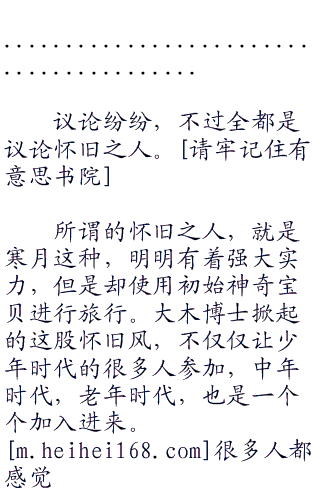 .........................
................
议论纷纷，不过全都是
议论怀旧之人。[请牢记住有
意思书院]
所谓的怀旧之人，就是
寒月这种，明明有着强大实
力，但是却使用初始神奇宝
贝进行旅行。大木博士掀起
的这股怀旧风，不仅仅让少
年时代的很多人参加，中年
时代，老年时代，也是一个
个加入进来。
[m.heihei168.com]很多人都
感觉